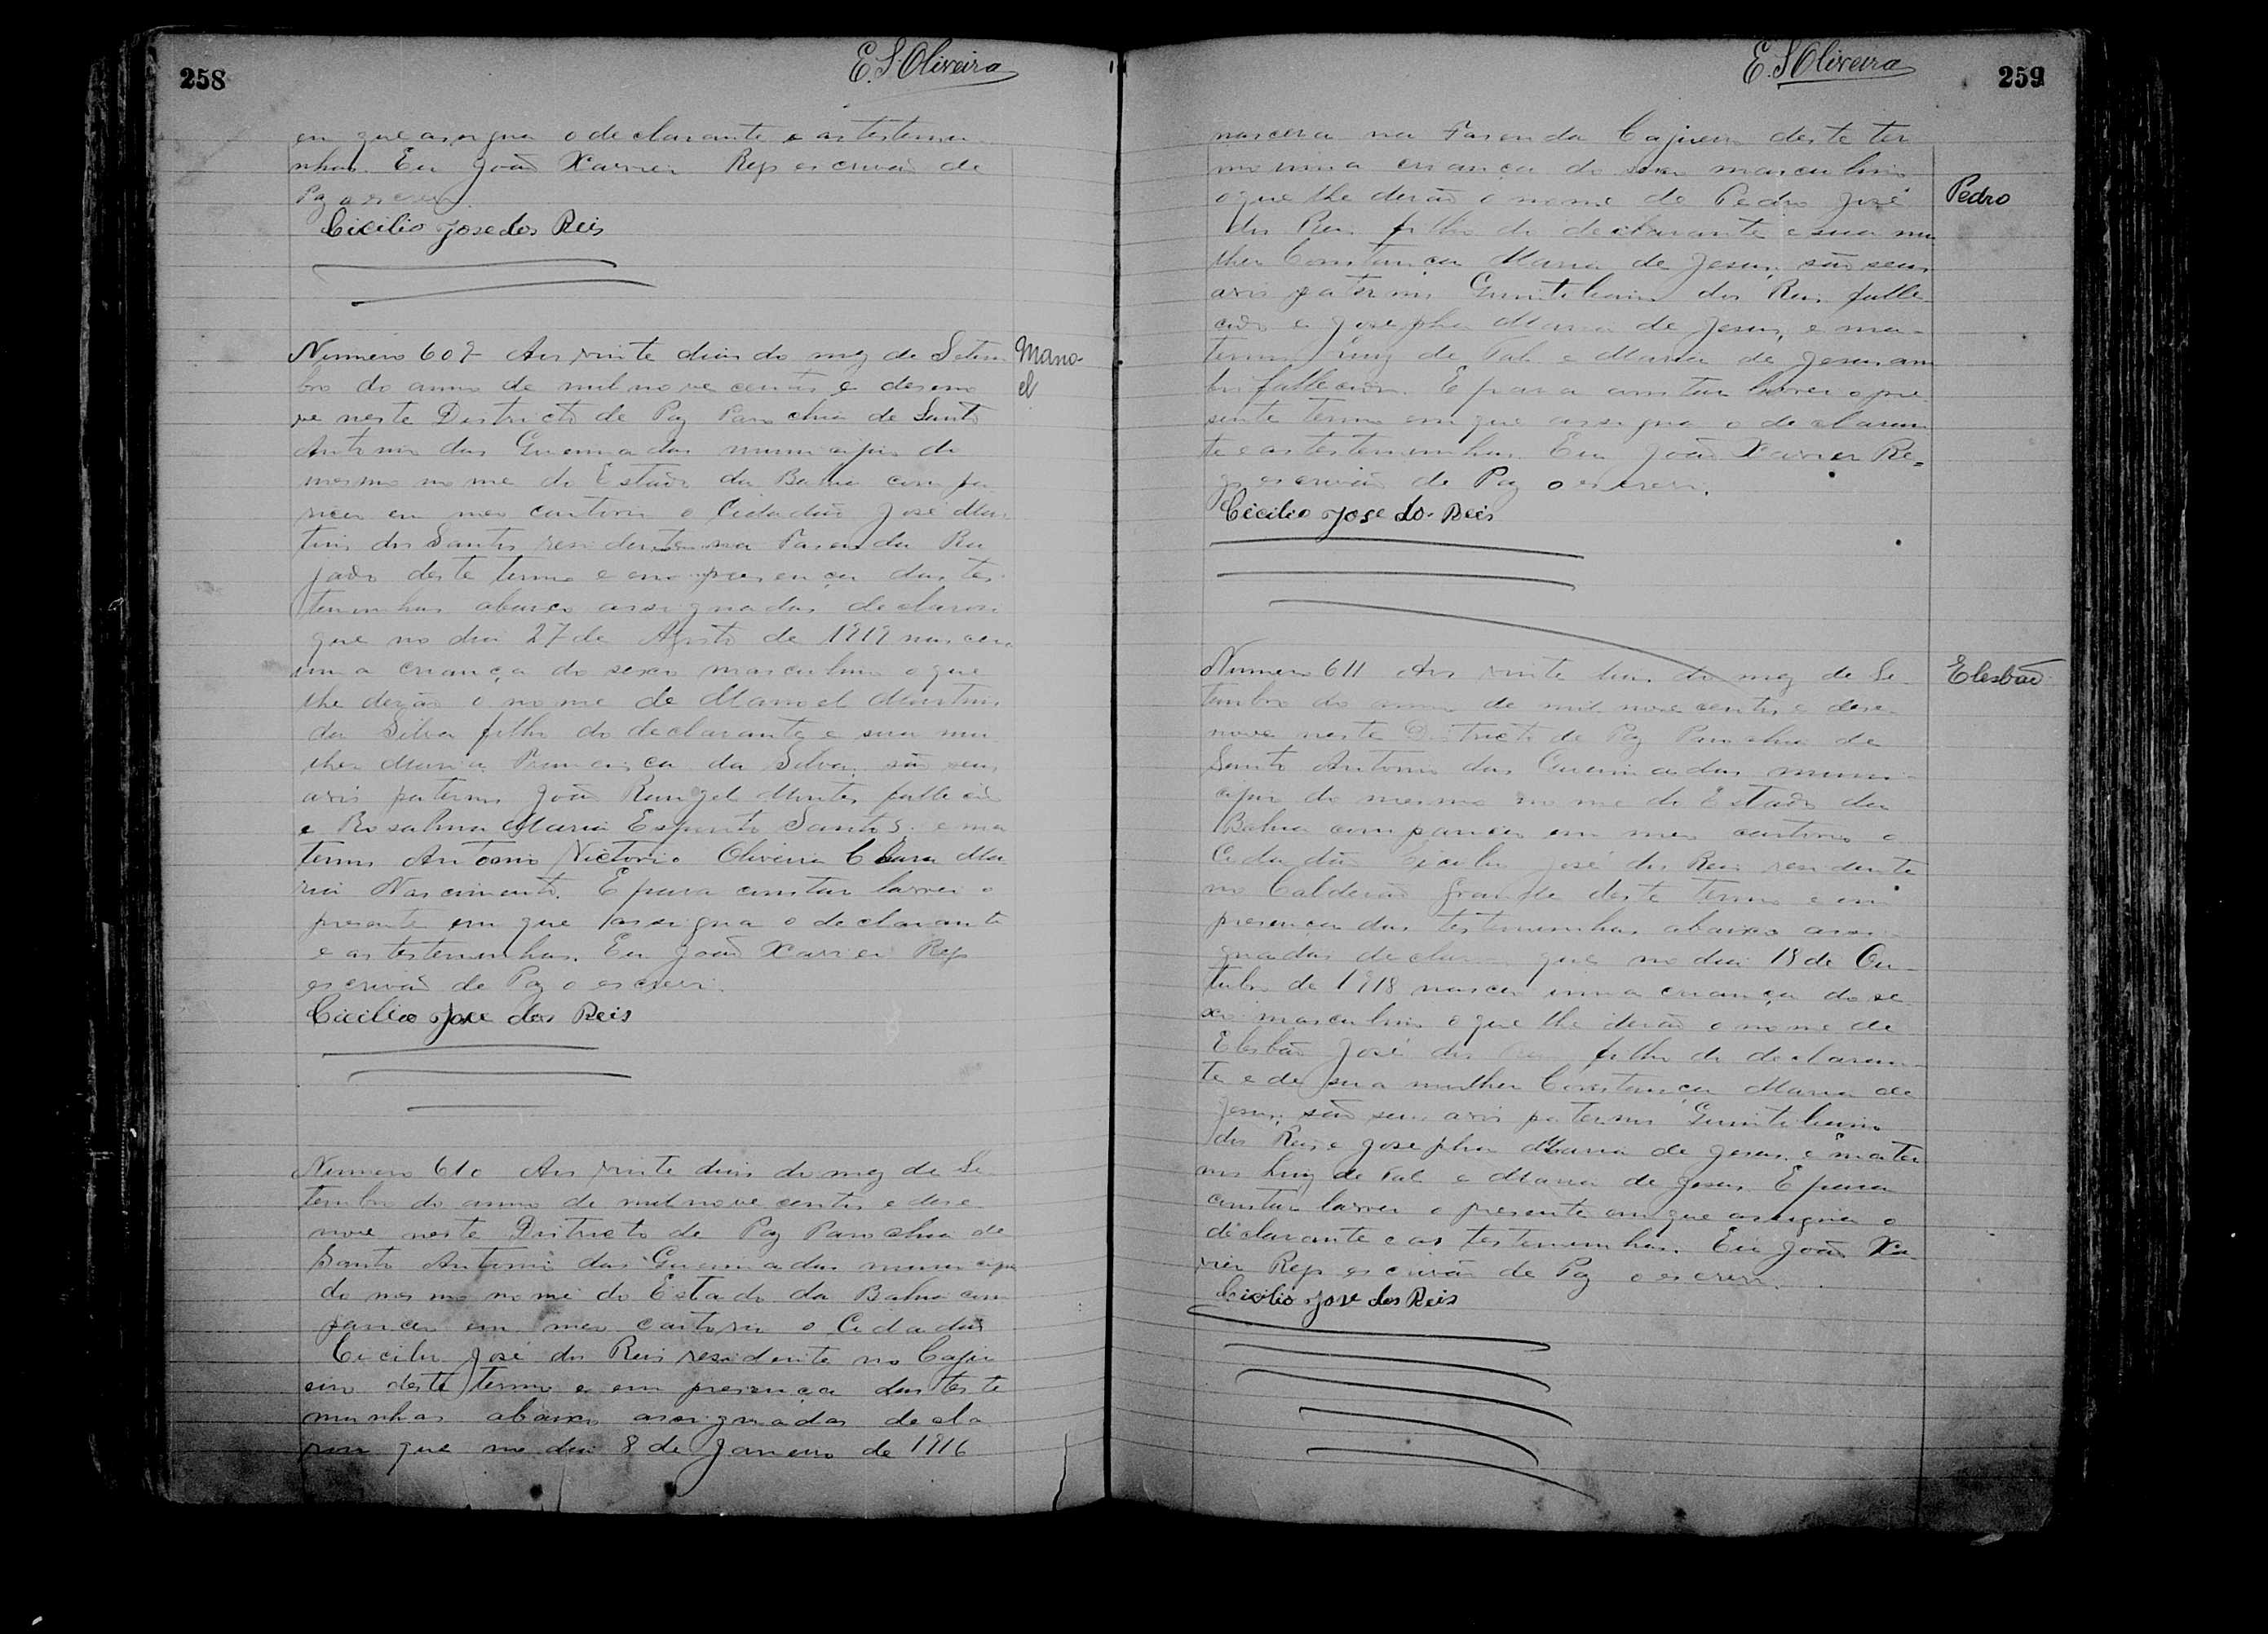 258
E. S. Oliveira
em que assigna o declarante e as testemu
nhas. Eu João Xavier Rego escrivão de
Paz o escrevi.
Cicilio Jose dos Reis
Numero 609 Aos vinte dias do mez de Setem
bro do anno de mil nove centos e deseno
ve neste Districto de Paz Parochia de Santo
Antonio das Queimadas municipio do
mesmo nome do Estado da Bahia compa
receu em meu cartorio o Cidadão José Mar
tins dos Santos residente na Fasenda
deste termo e em presença das tes
temunhas abaixo assignadas declarou
que no dia 27 de Agosto de 1919 nasceu
uma criança do sexo masculino o que
lhe derão o nome de Manoel Martins
da Silva filho do declarante e sua mu
lher Maria Francisca da Silva, são seus
avós paternos João Rangel Montes fallecido
e Rosalina Maria Espirito Santos, e ma
ternos Antonio Victorio Oliveira Clara Ma
ria Nascimento. E para constar lavrei o
presente em que assigna o declarante
e as testemunhas. Eu João Xavier Rego
escrivão de Paz o escrevi.
Cicilio Jose dos Reis
Mano-
el
Numero 610 Aos vinte dias do mez de Se
tembro do anno de mil nove centos e dese
nove neste Districto de Paz Parochia de
Santo Antonio das Queimadas municipio
do mesmo nome do Estado da Bahia com
pareceu em meu cartorio o Cidadão
Cicilio José dos Reis residente no Cajue
iro deste termo e em presença das teste
munhas abaixo assignadas decla
rou que no dia 8 de Janeiro de 1916
E. S. Oliveira
259
nascera na Fasenda Cajueiro deste ter
mo uma criança do sexo masculino
o que lhe derão o nome de Pedro José
dos Reis filho do declarante e sua mu
lher Constança Maria de Jesus, são seus
avós paternos Quintiliano dos Reis falle
cido e Josepha Maria de Jesus, e ma-
ternos Luiz de Tal e Maria de Jesus am
bos fallecidos. E para constar lavrei o pre
sente termo em que assigna o declaran
te e as testemunhas. Eu João Xavier Re=
go escrivão de Paz o escrevi.
Cicilio Jose dos Reis
Pedro
Numero 611 Aos vinte dias do mez de Se-
tembro do anno de mil nove centos e dese-
nove neste Districto de Paz Parochia de
Santo Antonio das Queimadas muni-
cipio do mesmo nome do Estado da
Bahia compareceu em meu cartorio o
Cidadão Cicilio José dos Reis residente
no Calderão Grande deste termo e em
presença das testemunhas abaixo assi-
gnadas declarou que no dia 18 de Ou-
tubro de 1918 nasceu uma criança do se
xo masculino o que lhe derão o nome de
Elesbão José dos Reis filho do declaran-
te e de sua mulher Constança Maria de
Jesus, são seus avós paternos Quintiliano
dos Reis e Josepha Maria de Jesus e mater
nos Luiz de Tal e Maria de Jesus. E para
constar lavrei o presente em que assigna o
declarante e as testemunhas. Eu João Xa
vier Rego escrivão de Paz o escrevi.
Cicilio Jose dos Reis
Elesbão